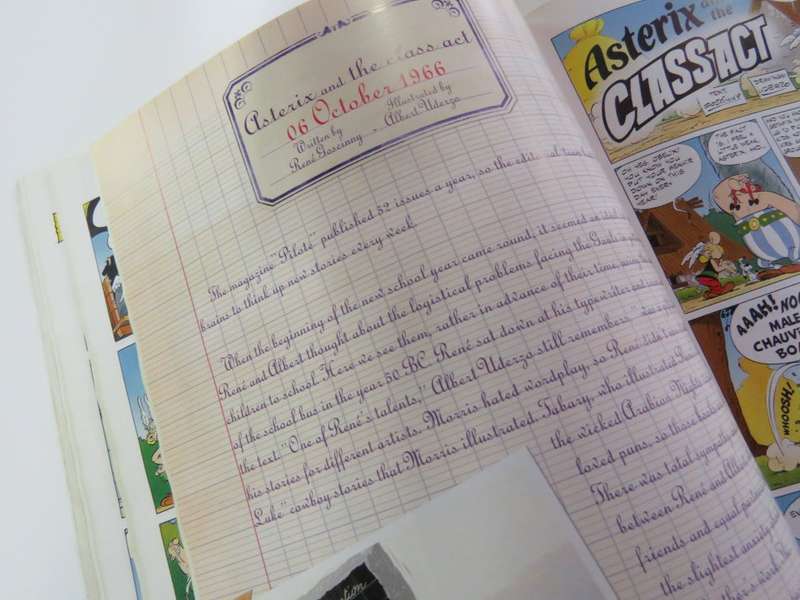 Asterix and the class act
06 October 1966
Written by
René Goscinny
Illustrated by
Albert Uderzo
The magazine "Pilote" published 52 issues a year, so the editorial team
brains to think up new stories every week.
When the beginning of the new school year came round, it seemed
René and Albert thought about the logistical problems facing the Gauls
children to school. Here we see them, rather in advance of their time,
of the school bus in the year 50 BC. René sat down at his typewriter
the text. "One of René's talents," Albert Uderzo still remembers, "was
his stories for different artists. Morris hated wordplay, so René didn't
Luke" cowboy stories that Morris illustrated. Tabary, who illustrated
the wicked Arabian
loved puns, so those
There was total
between René and
friends and equal
the slightest anxiety
Asterix and the
CLASS ACT
TEXT
GOSCINNY
DRAWINGS
UDERZO
OH YES, OBELIX!
YOU KNOW YOU
PUT YOUR MENHIR
DOWN ON THIS
DAY EVERY
YEAR!
THE FACT
IS, I FEEL A
LITTLE WEAK,
ASTERIX, AND...
AAAH!
MALE
CHAUV
WHOOSH!